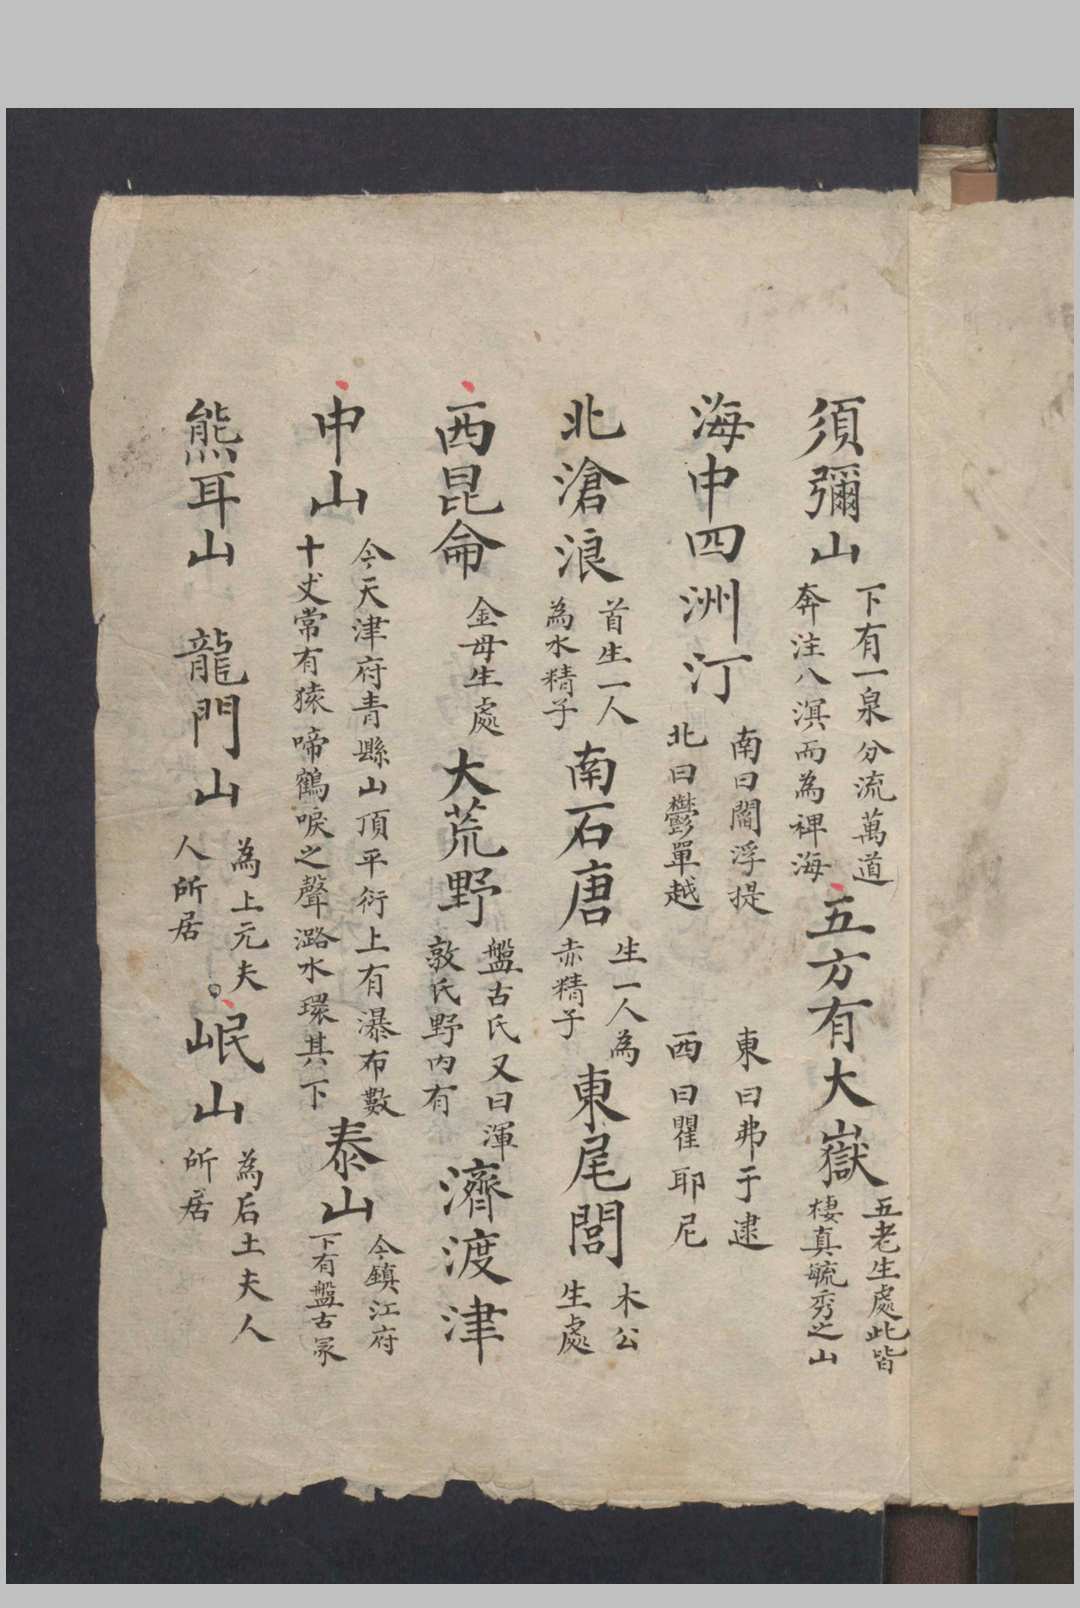 須彌山 下有一泉分流萬道奔注八溟而為裨海 五方有大嶽 五老生處此皆棲真毓秀之山
海中四洲汀 南曰閻浮提 北曰鬱單越 東曰弗于逮 西曰瞿耶尼
北滄浪 首生一人為水精子 南石唐 生一人為赤精子 東尾閭 木公生處
西昆侖 金母生處 大荒野 盤古氏又曰渾敦氏野内有 濟渡津
中山 今天津府青縣山頂平衍上有瀑布數十丈常有猿啼鶴唳之聲潞水環其下 泰山 今鎮江府下有盤古冢
熊耳山 龍門山 為上元夫人所居 岷山 為后土夫人所居